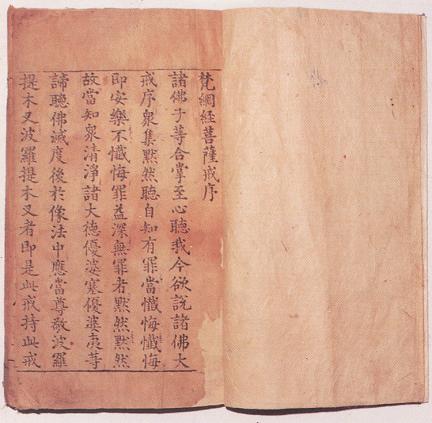 梵網経菩薩戒序
諸佛子等合掌至心聽我今欲說諸佛大
戒序衆集默然聽自知有罪當懺悔懺悔
即安樂不懺悔罪益深無罪者默然默然
故當知衆清淨諸大德優婆塞優婆夷等
諦聽佛滅度後於像法中應當尊敬波羅
提木叉波羅提木叉者即是此戒持此戒